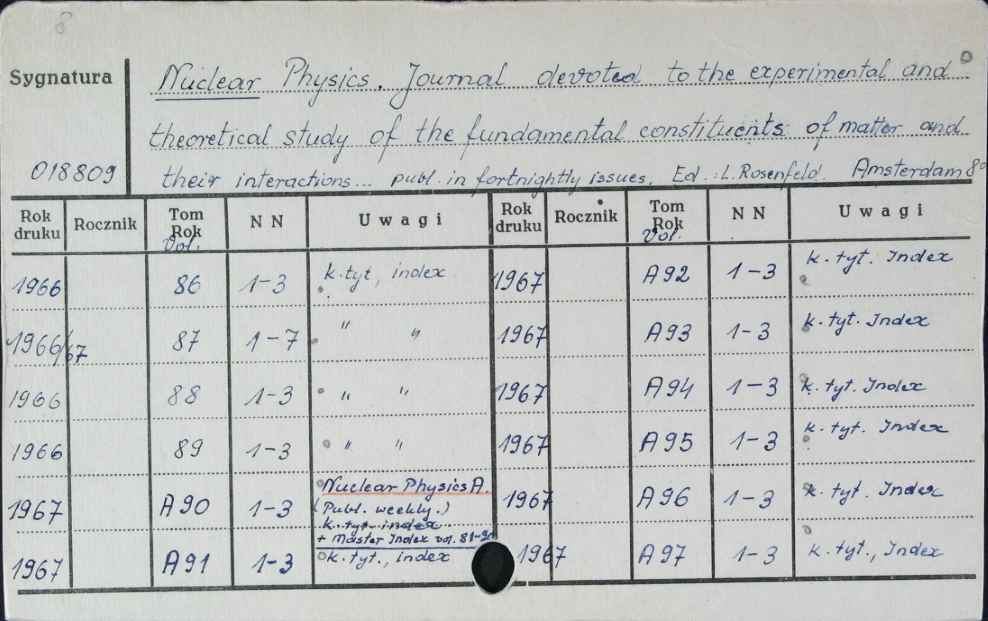 8
Sygnatura Nuclear Physics. Journal devoted to the experimental and
theoretical study of the fundamental constituents of matter and
018809 their interactions... publ. in fortnightly issues. Ed.: L. Rosenfeld. Amsterdam 8°
Rok druku Rocznik Tom Rok Vol. N N Uwagi Rok druku Rocznik Tom Rok Vol. N N Uwagi
1966 86 1-3 k. tyt, index 1967 A92 1-3 k. tyt. Index
1966/67 87 1-7 " " 1967 A93 1-3 k. tyt. Index
1966 88 1-3 " " 1967 A94 1-3 k. tyt. Index
1966 89 1-3 " " 1967 A95 1-3 k. tyt. Index
1967 A90 1-3 Nuclear Physics A. (Publ. weekly.) k. tyt. index + Master Index vol. 81- 1967 A96 1-3 k. tyt. Index
1967 A91 1-3 k. tyt., index 1967 A97 1-3 k. tyt., Index